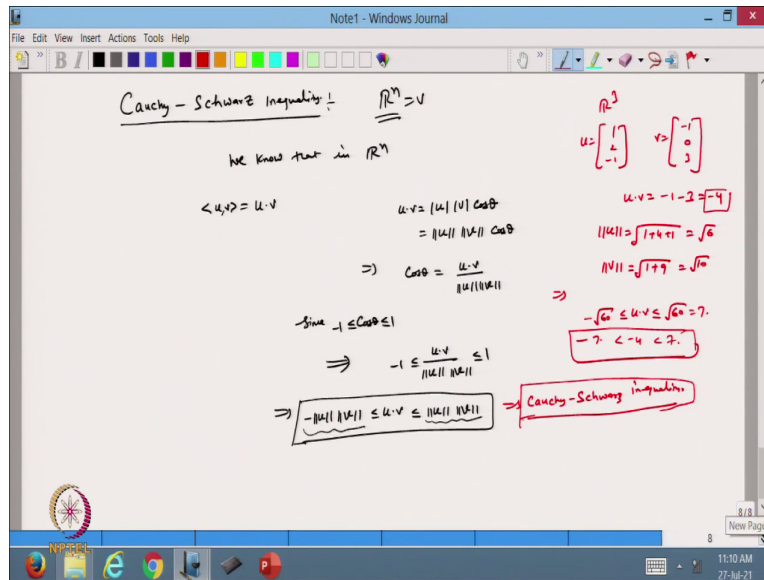 Note1 - Windows Journal
File Edit View Insert Actions Tools Help
Cauchy - Schwarz Inequality :- ℝⁿ = V
We know that in ℝⁿ
<u,v> = u·v
u·v = |u| |v| Cosθ
= ||u|| ||v|| Cosθ
⇒) Cosθ = u·v / ||u|| ||v||
Since -1 ≤ Cosθ ≤ 1
⇒ -1 ≤ u·v / ||u|| ||v|| ≤ 1
⇒) -||u|| ||v|| ≤ u·v ≤ ||u|| ||v|| ⇒) Cauchy-Schwarz inequality.
ℝ³
u = [1 2 -1] v = [-1 0 3]
u·v = -1 -3 = -4
||u|| = √1+4+1 = √6
||v|| = √1+9 = √10
⇒)
-√60 ≤ u·v ≤ √60 = 7.
-7. < -4 < 7.
NPTEL
8/8
New Page
8
11:10 AM
27-Jul-21